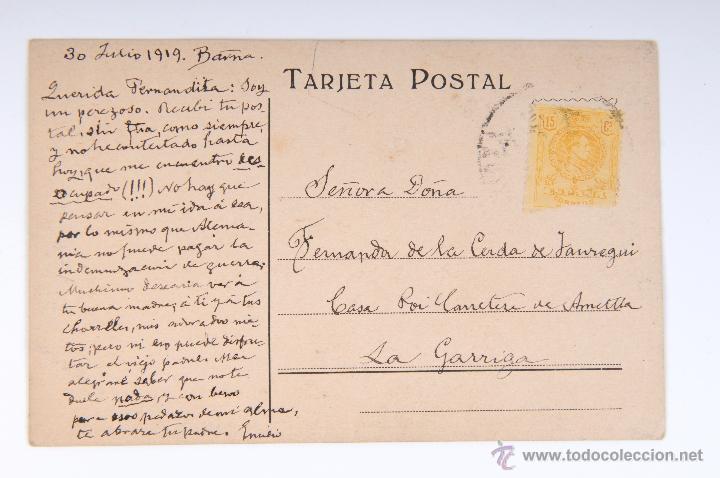 30 Julio 1919. Barna.
Querida Fernandita: Soy
un perezoso. Recibí tu pos
tal, sin fha, como siempre,
y no he contestado hasta
hoy, que me encuentro des
ocupado (!!!) No hay que
pensar en mi ida á esa,
por lo mismo que Alema-
nia no puede pagar la
indemnización de guerra.
Muchísimo desearía ver á
tu buena madre, á ti y á tus
, mis adorados nie-
tos; pero ni eso puede disfru-
tar el viejo padre. Me
alegra saber que no te
duele nada, y con beso
para esos pedazos de mi alma,
te abraza tu padre. Emilio
TARJETA POSTAL
15 Cs
CORREOS
Señora Doña
Fernanda de la Cerda de Jauregui
Casa Roi Carretera de Ametlla
La Garriga
© www.todocoleccion.net